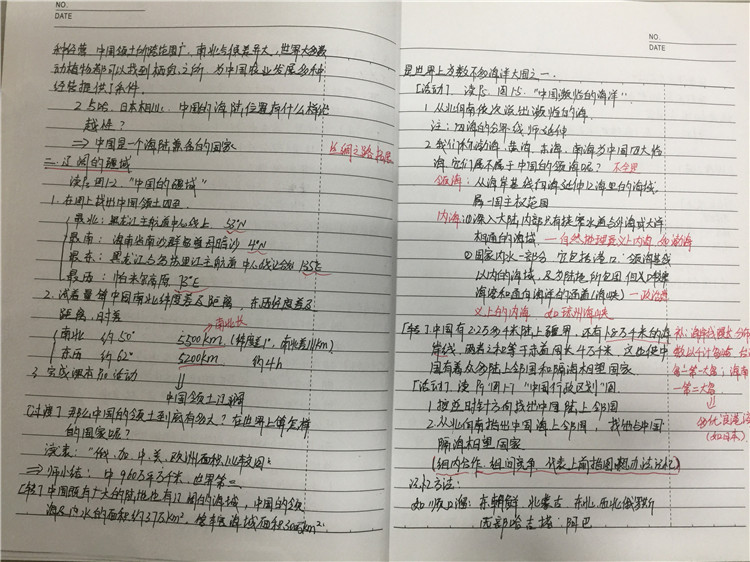 NO.
DATE
种经营 中国领土南北跨范围广，南北气候差异大，世界大多数
动植物都可以找到栖息之所 为中国农业发展多种
经营提供了条件。
2. 与 日本相比：中国的海陆位置有什么样优
越性？
⇒ 中国是一个海陆兼备的国家 丝绸之路拓展
二. 辽阔的疆域
读 图1.2 "中国的疆域"
1. 在图上找出中国领土四至
最北：黑龙江主航道中心线上 53°N
最南：海南省南沙群岛曾母暗沙 4°N
最东：黑龙江与乌苏里江主航道中心线汇合处 135°E
最西：帕米尔高原 73°E
2. 试着量算中国南北纬度差及距离，东西经度差及
距离，时差
→南北长
南北 约50° 5500km (纬度差1°，南北差111km)
东西 约62° 5200km 约4h
3. 完成课本 活动 ⇓
中国领土辽阔
[过渡] 那么中国的领土到底有多大？在世界上算怎样
的国家呢？
读表："俄、加、中、美、 面积比较图"
⇒ 师小结：中 960万平方千米 世界第三
[转] 中国既有广大的陆地也有辽阔的海域，中国的领
海及内水的面积约37万km²，
NO.
DATE
是世界上为数不多海洋大国之一.
[活动]. 读 图1.5. "中国濒临的海洋".
1. 从北向南依次说出濒临的海.
注：四海的分界线师延伸
2. 我们称渤海、黄海、东海、南海为中国四大临
海，它们属不属于中国的领海呢？ 不全是
领海：从海岸基线向海延伸12海里的海域.
属一国主权范围
内海：①深入大陆内部只有狭窄水道与外海或大洋
相通的海域. —自然地理意义上内海 如渤海
②国家内水一部分 它包括港口、领海基线
以内的海域，及为陆地所包围但入口较窄
海湾和通向海洋的海道(海峡) —政治意
义上的内海 如琼州海峡
[转] 中国有2.2万多千米陆上疆界，还有1.8万多千米的海 补：海岸线
岸线，两者之和等于赤道周长4万千米，这也使中
国有着众多陆上邻国和隔海相望国家. 岛—第一大岛；海南
[活动]. 读 图1.7 "中国行政区划"图 —第二大岛
1. 按逆时针方向找出中国陆上邻国 ⇓
2. 从北向南指出中国海上邻国，找他与中国 (如日本)
隔海相望国家
(组内合作、组间竞争 代表上前指图 法记忆)
记忆方法：
如 顺口溜：东朝鲜 北蒙古 东北、西北俄罗斯
西部哈吉塔 阿巴